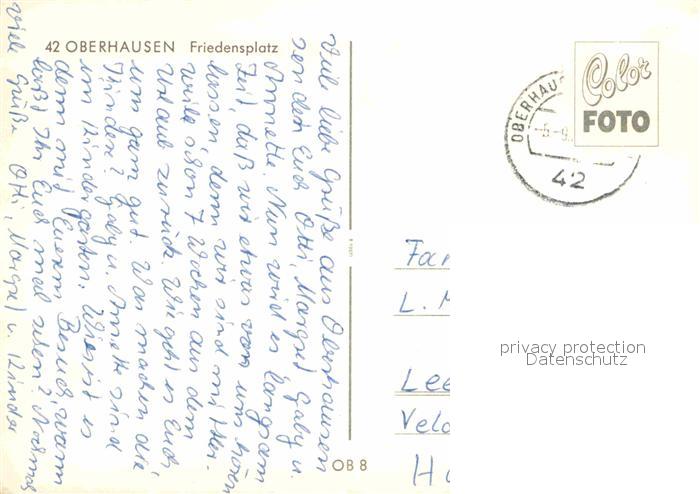 42 OBERHAUSEN Friedensplatz
Viele liebe Grüße aus Oberhausen
senden Euch Otti, Margret Gaby u.
Annette. Nun wird es langsam
Zeit, daß wir etwas von uns hören
lassen, denn wir sind mittler-
weile schon 7 Wochen aus dem
Urlaub zurück. Wie geht es Euch,
uns ganz gut. Was machen die
Kinder? Gaby u. Annette sind
im Kindergarten. Wie ist es
denn mit Eurem Besuch, wann
laßt Ihr Euch mal sehen? Nochmals
viele Grüße Otti, Margret u. Kinder
OB 8
Color
FOTO
OBERHAUS
42
Fam
L. M
Lee
Veld
Ha
privacy protection
Datenschutz